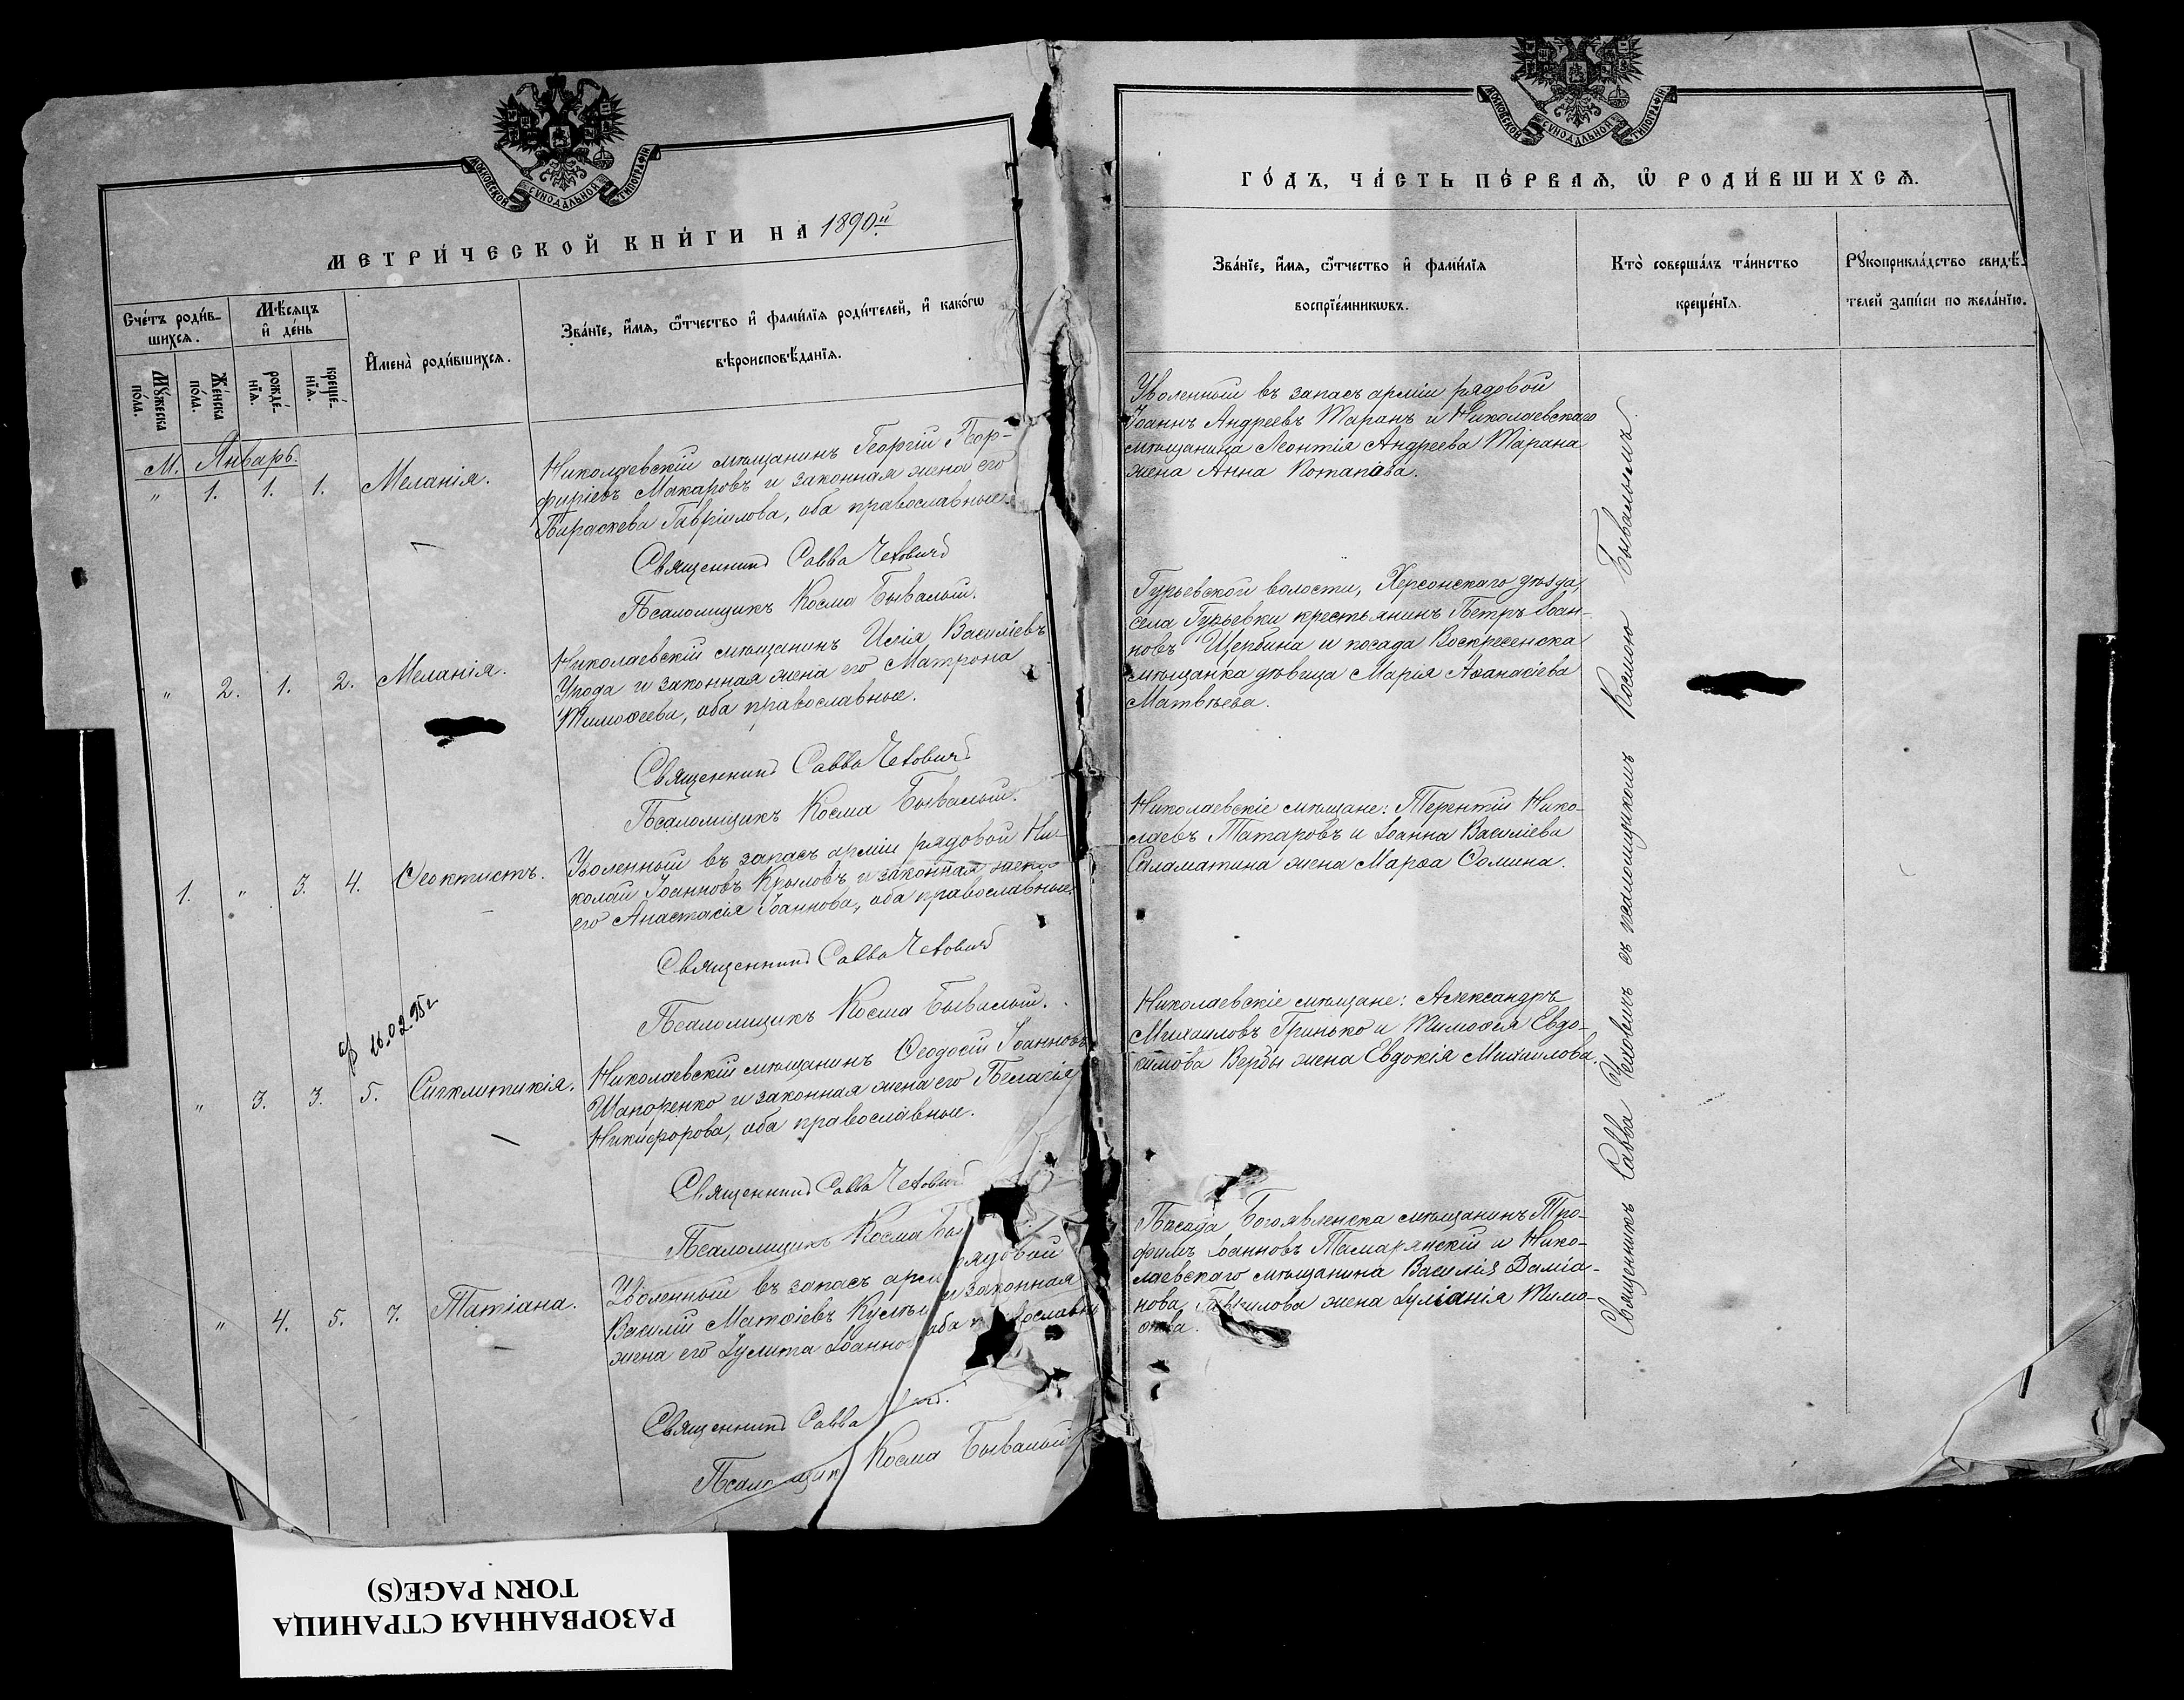 МОСКОВСКОЙ СУНОДАЛЬНОЙ ТИПОГРАФІИ
МЕТРИ́ЧЕСКОЙ КНИ́ГИ НА 1890й
Сче́тъ роди́в-
шихсѧ.
Мѣ́сѧцъ
и҆ де́нь
Мꙋ́жеска
по́ла.
Же́нска
по́ла.
рожде́-
нїѧ.
креще́-
нїѧ.
И҆мена̀ роди́вшихсѧ.
Зва́нїе, и҆́мѧ, ѻ҆́тчество и҆ фами́лїѧ роди́телей, и҆ како́гѡ
вѣроисповѣ́данїѧ.
М. Январь.
" 1. 1. 1. Меланія.
Николаевскій мѣщанинъ Георгій Пор-
фиріевъ Макаровъ и законная жена его
Параскева Гавріилова, оба православные.
Священникъ Савва Чехович
Псаломщикъ Косма Бывалый.
" 2. 1. 2. Меланія.
Николаевскій мѣщанинъ Илія Василіевъ
Урода и законная жена его Матрона
Тимоѳеева, оба православные.
Священникъ Савва Чехович
Псаломщикъ Косма Бывалый.
1. " 3. 4. Ѳеоктистъ.
Уволенный въ запасъ арміи рядовой Ни-
колай Іоанновъ Крыловъ и законная жена
его Анастасія Іоаннова, оба православные.
Священникъ Савва Чехович
Псаломщикъ Косма Бывалый.
16.02.95г.
" 3. 3. 5. Сигклитикія.
Николаевскій мѣщанинъ Ѳеодосій Іоанновъ
Шапоренко и законная жена его Пелагія
Никифорова, оба православные.
Священникъ Савва Чехович
Псаломщикъ Косма Бы
" 4. 5. 7. Татіана.
Уволенный въ запасъ арм рядовой
Василій Матѳіевъ и законная
жена его Іулита Іоанно оба православны
Священникъ Савва
Псаломщик Косма Бывалый
МОСКОВСКОЙ СУНОДАЛЬНОЙ ТИПОГРАФІИ
ГО́ДЪ, ЧА́СТЬ ПЕ́РВАѦ, Ѡ҆ РОДИ́ВШИХСѦ.
Зва́нїе, и҆́мѧ, ѻ҆́тчество и҆ фами́лїѧ
воспрїе́мникѡвъ.
Кто̀ соверша́лъ та́инство
креще́нїѧ.
Рꙋкоприкла́дство свидѣ́-
телей за́писи по жела́нїю.
Уволенный въ запасъ арміи рядовой
Іоаннъ Андреевъ Таранъ и Николаевскаго
мѣщанина Леонтія Андреева Тарана
жена Анна Потапіева.
Гурьевской волости, Херсонскаго уѣзда,
села Гурьевки крестьянинъ Петръ Іоан-
новъ Щербина и посада Воскресенска
мѣщанка дѣвица Марія Аѳанасіева
Матвѣева.
Николаевскіе мѣщане: Терентій Нико-
лаевъ Татаровъ и Іоанна Василіева
Саламатина жена Марѳа Ѳомина.
Николаевскіе мѣщане: Александръ
Михаиловъ Гринько и Тимоѳея Евдо-
кимова Вербы жена Евдокія Михаилова.
Посада Богоявленска мѣщанинъ Тро-
фимъ Іоанновъ Тамарянскій и Нико-
лаевскаго мѣщанина Василія Даміа-
нова жена Іуліанія Тимо-
ѳеева.
Священникъ Савва Чеховичъ съ псаломщикомъ Космою Бывалымъ.
РАЗОРВАННАЯ СТРАНИЦА
TORN PAGE(S)